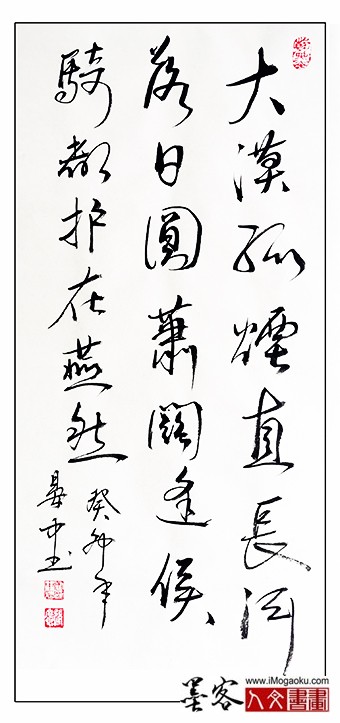 大漠孤煙直長河
落日圓蕭關逢候
騎都护在燕然
癸卯年
墨客
www.iMogaoku.com
人文書畫